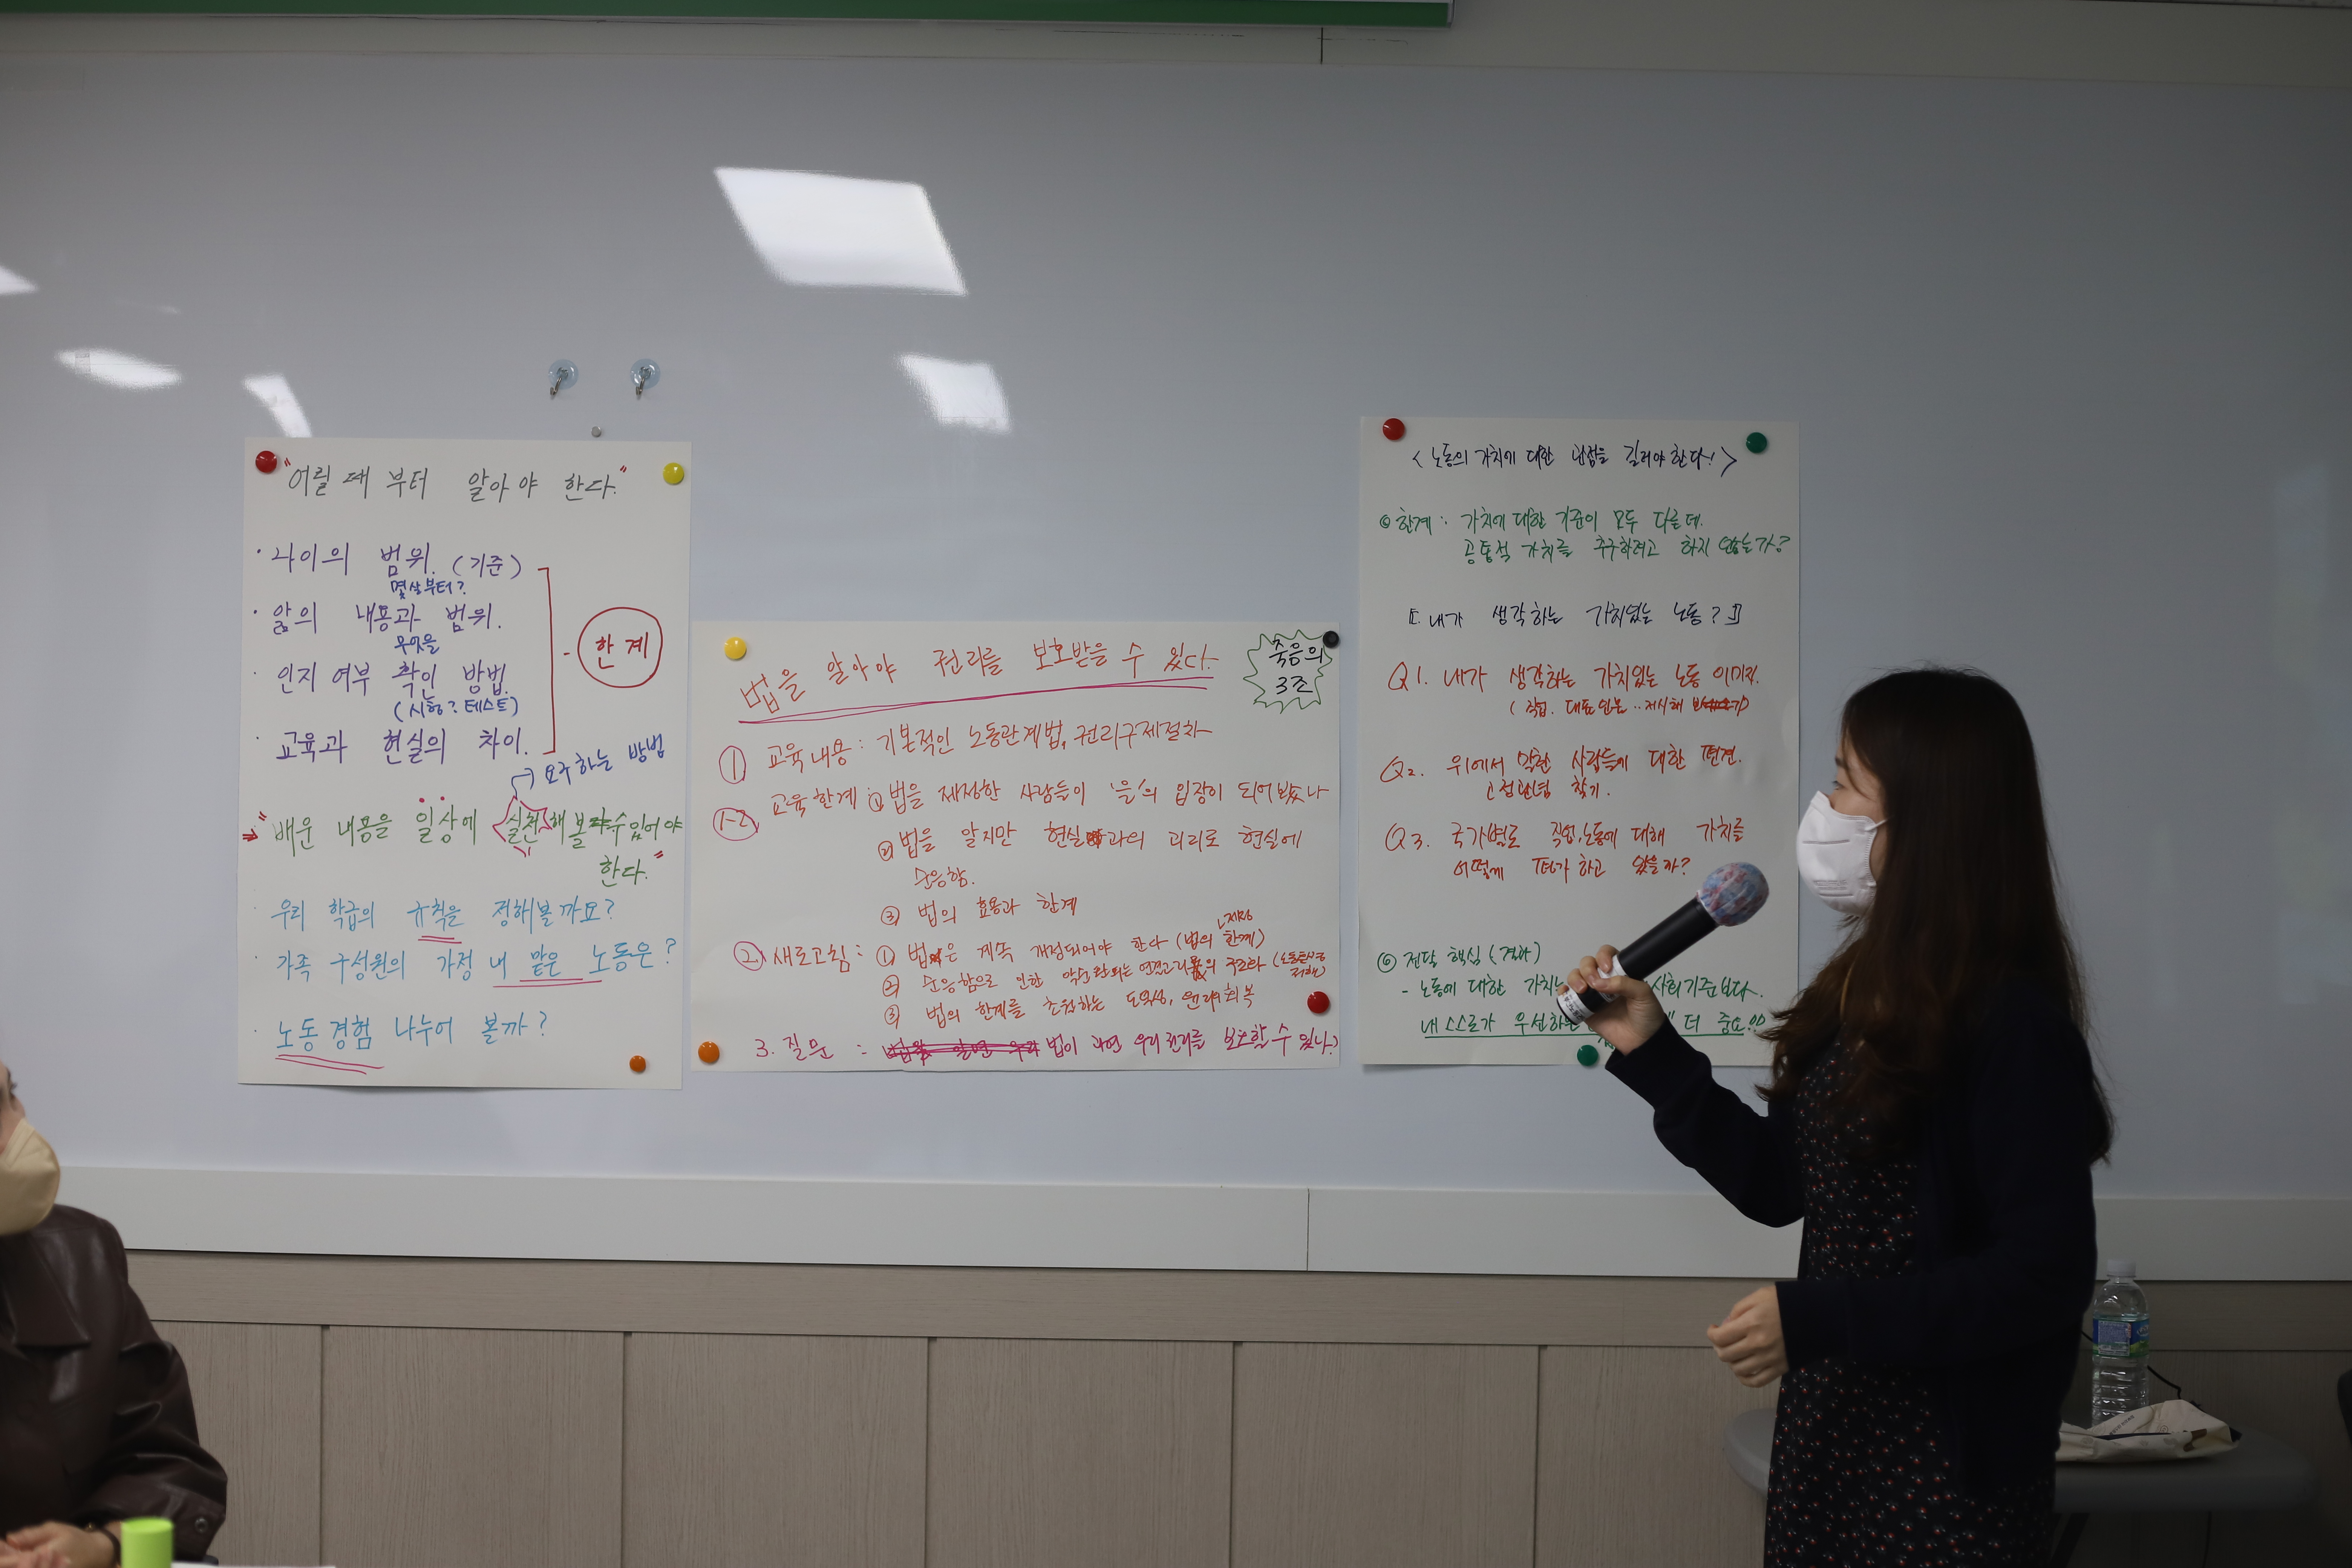 "어릴 때 부터 알아야 한다."
· 나이의 범위. (기준)
몇살부터?
· 앎의 내용과 범위.
무엇을
· 인지 여부 확인 방법.
(시험? 테스트)
· 교육과 현실의 차이.
- 한계
→ 요구하는 방법
"배운 내용을 일상에 실천해 볼 수 있어야
한다."
· 우리 학급의 규칙을 정해볼까요?
· 가족 구성원의 가정 내 맡은 노동은?
· 노동경험 나누어 볼까?
법을 알아야 권리를 보호받을 수 있다.
죽음의
3조
① 교육내용 : 기본적인 노동관계법, 권리구제절차
①-2 교육한계 ① 법을 제정한 사람들이 '을'의 입장이 되어봤나
② 법을 알지만 현실과의 괴리로 현실에
순응함.
③ 법의 효용과 한계
제정
② 새로고침 : ① 법은 계속 개정되어야 한다 (법의 한계)
② 순응함으로 인한 악순환되는 연결고리의
③ 법의 한계를 초월하는 도의성, 권리 회복
3. 질문 : 법이 과연 우리 권리를 보호할 수 있나?
<노동의 가치에 대한 관점을 길러야 한다!>
◎ 한계 : 가치에 대한 기준이 모두 다른데.
공통적 가치를 추구하려고 하지 않는가?
[내가 생각하는 가치있는 노동?]
Q1. 내가 생각하는 가치있는 노동 이미지.
(직업. 대표인물 .. 제시해
Q2. 위에서 말한 사람들에 대한 편견.
고정관념 찾기.
Q3. 국가별로 직업, 노동에 대해 가치를
어떻게 평가하고 있을까?
◎ 전달 핵심 (결과)
- 노동에 대한 가치는 사회기준보다.
내 스스로가 우선하는 더 중요!!